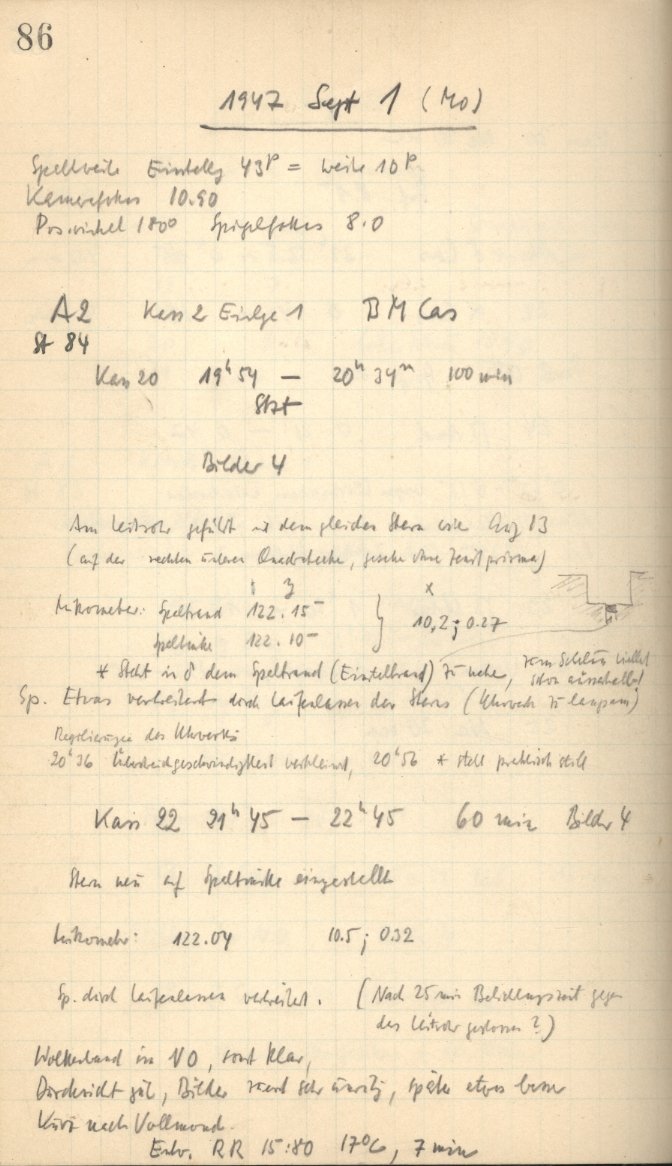 86
1947 Sept 1 (Mo)
Spaltweite Einstellg 43ᵖ = weite 10ᵖ
Kamerafokus 10.90
Pos.winkel 180° Spiegelfokus 8.0
A2 Kass 2 Einlge 1 BM Cas
St 84
Kass 20 19ʰ 54 — 20ʰ 34ᵐ 100 min
Bilder 4
Am Leitrohr geführt dem gleichen Stern wie
(auf der rechten unteren Quadratecke, gesehen ohne Zenitprisma)
x
Mikrometer: Spaltrand 122.15
Spaltmitte 122.10 } 10,2; 0.27
* Steht in δ dem Spaltrand zu nahe, vom Schluss vielleicht schon ausserhalb!
Sp. Etwas verbreitert durch Laufenlassen des Sterns (Uhrwerk zu langsam)
Regulierungen des Uhrwerks
20ʰ36 verkleinert, 20ʰ56 * steht praktisch still
Kass 22 21ʰ 45 — 22ʰ 45 60 min Bilder 4
Stern neu auf Spaltmitte eingestellt
Mikrometer: 122.04 10.5; 0.32
Sp. durch Laufenlassen verbreitert. (Nach 25 min Belichtungszeit gegen
das Leitrohr gestossen?)
Wolkenband im NO, sonst klar,
Durchsicht gut, Bilder zuerst sehr unruhig, später etwas besser
Kurz nach Vollmond.
Entw. RR 15:80 17°C, 7 min